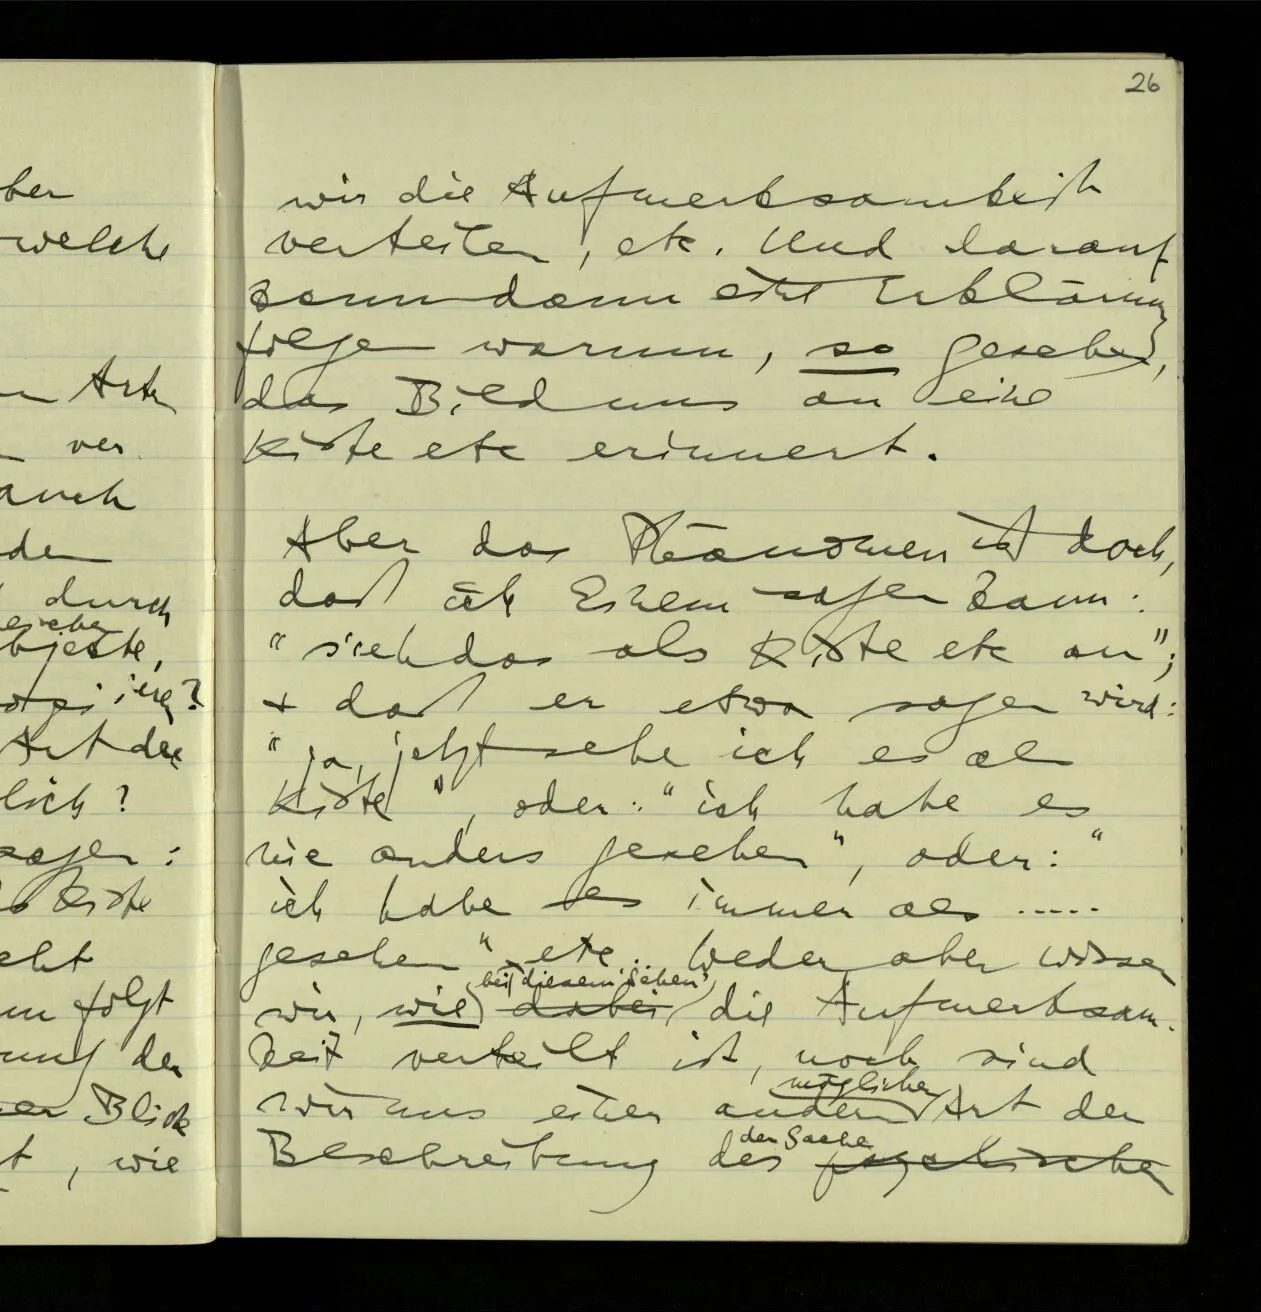 26
ber
welche
Art
ver
auch
den
durch
Art der
lich?
sagen:
Kiste
eht
folgt
ung der
er Blick
t, wie
wir die Aufmerksamkeit
verteilen, etc. Und darauf
kann dann eine Erklärung
folgen warum, so gesehen,
das Bild uns an eine
Kiste etc erinnert.
Aber das Phänomen ist doch,
daß ich Einem sagen kann:
“sieh das als Kiste etc an”;
+ daß er etwa sagen wird:
“ja, jetzt sehe ich es als
Kiste”, oder: “ich habe es
nie anders gesehen”, oder: “
ich habe es immer als .....
gesehen” etc.. Weder aber wissen
bei ‘diesem Sehen’
wir, wie dabei die Aufmerksam-
keit verteilt ist, noch sind
möglichen
wir uns einer andern Art der
der Sache
Beschreibung des psychischen